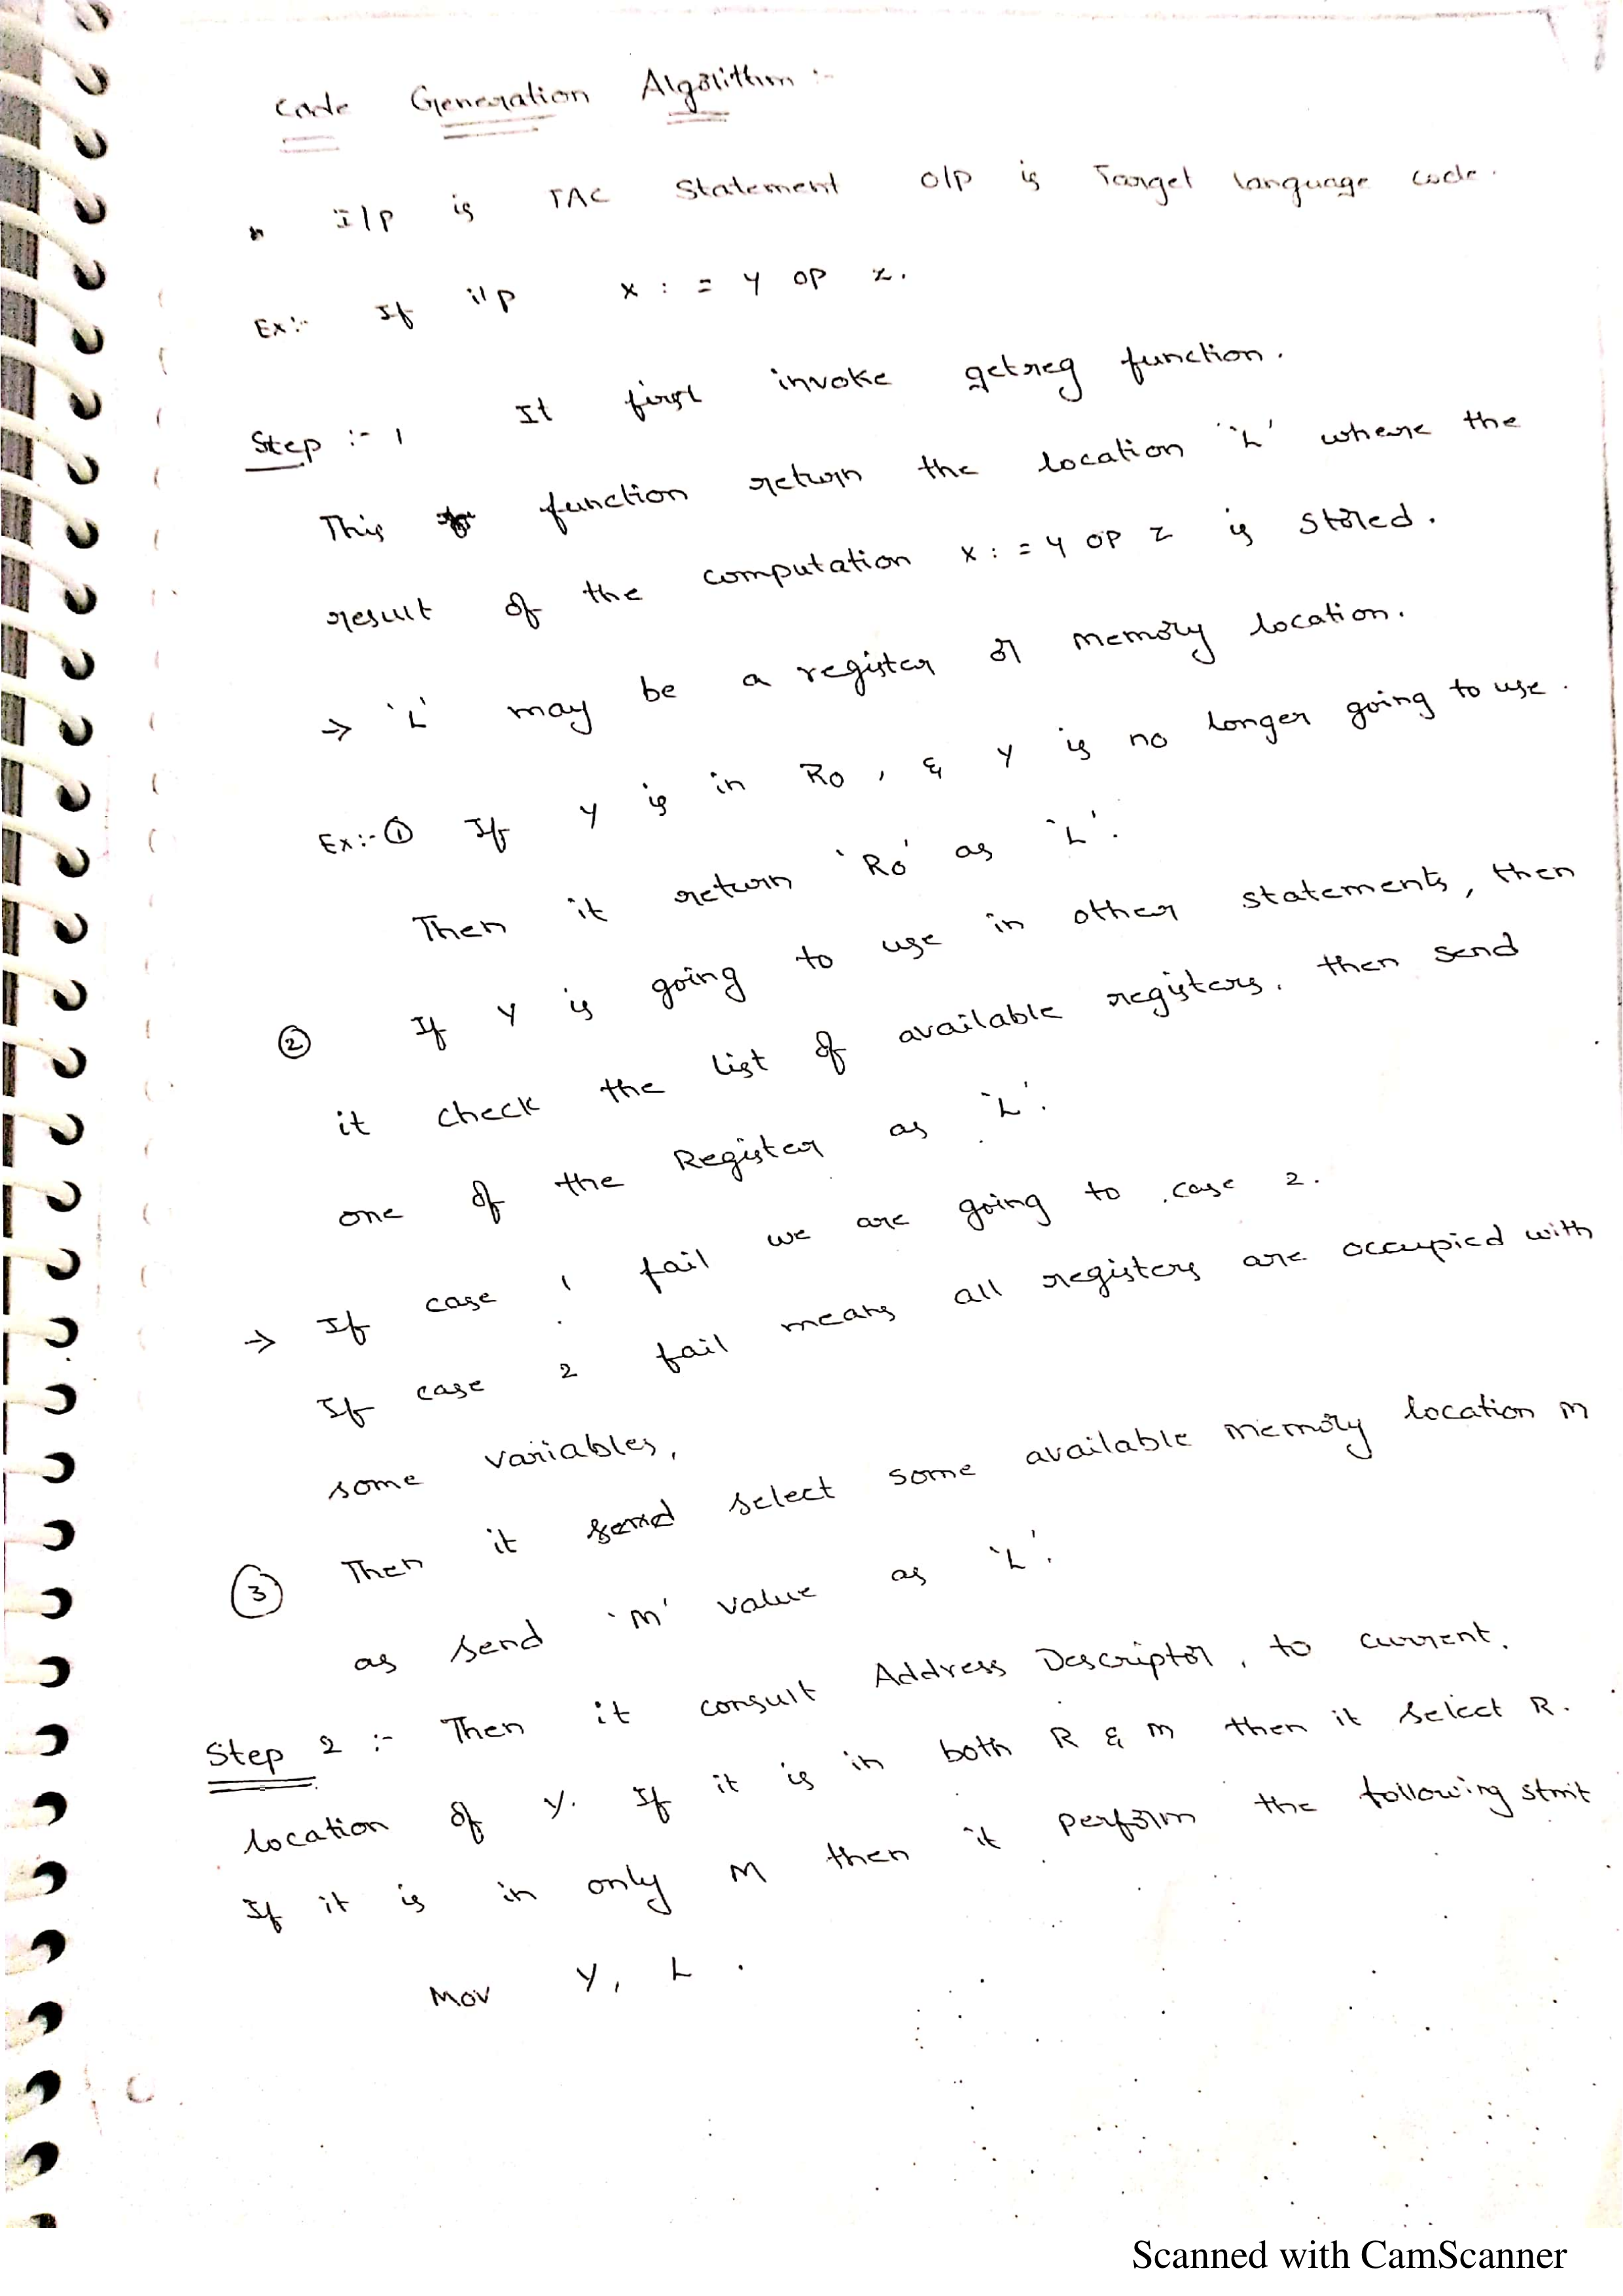 Code Generation Algorithm :-
I/p is TAC Statement o/p is Target language code.
Ex:- If i/p x : = y op z.
Step :- 1 It first invoke getreg function.
This function return the location 'L' where the
result of the computation x : = y op z is stored.
→ 'L' may be a register or memory location.
Ex:- ① If y is in R0, & y is no longer going to use.
Then it return 'R0' as 'L'.
② If y is going to use in other statements, then
it check the list of available registers, then send
one of the Register as 'L'.
→ If case 1 fail we are going to case 2.
If case 2 fail means all registers are occupied with
some variables,
③ Then it send select some available memory location m
as send 'm' value as 'L'.
Step 2 :- Then it consult Address Descriptor, to current.
location of y. If it is in both R & m then it select R.
If it is in only M then it perform the following stmt
Mov y, L.
Scanned with CamScanner